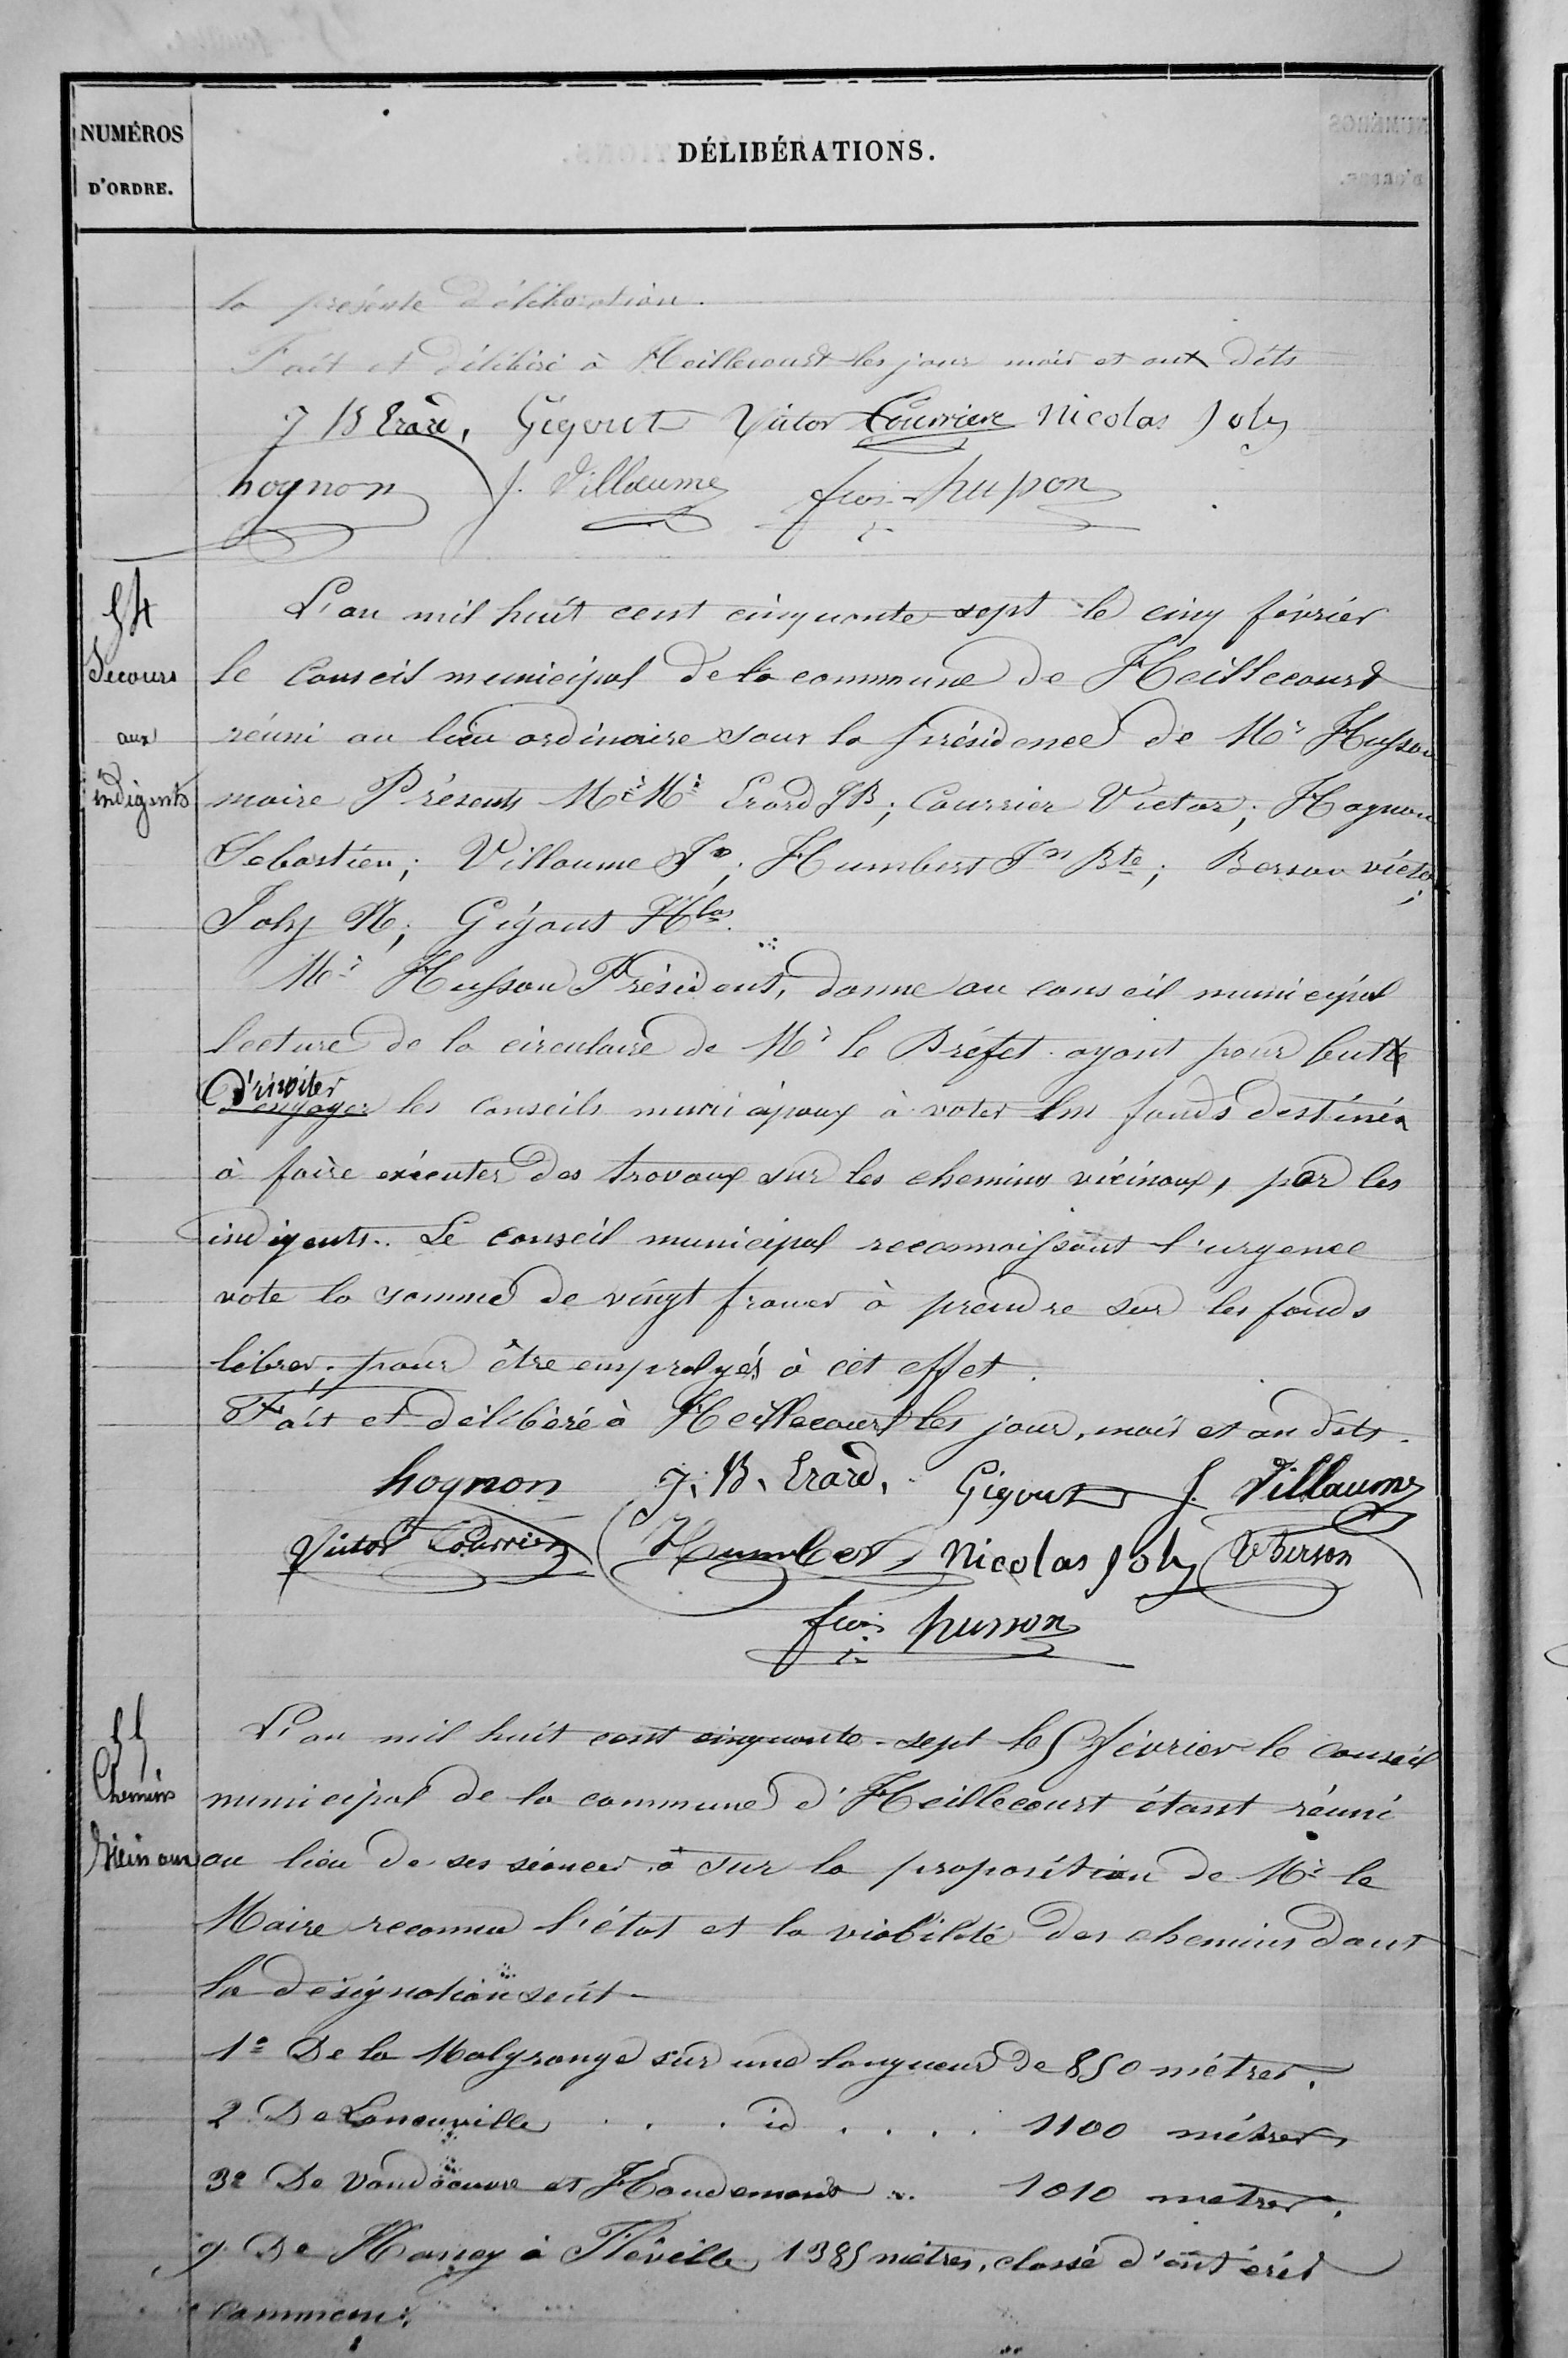 NUMÉROS
D'ORDRE.
DÉLIBÉRATIONS.
la présente délibération.
Fait et délibéré à Heillecourt les jour mois et an dits
J B Erard, Gigout Victor Courrier Nicolas Joly
hognon J. Villaume frois husson
54
Secours
aux
indigents
L'an mil huit cent cinquante-sept le cinq février
le Conseil municipal de la commune de Heillecourt
réuni au lieu ordinaire sous la présidence de Mr Husson
maire Présents Mr Mr Erard JB; Courrier Victor; Hognon
Sebastien; Villaume Jn; Humbert Jn Bte; Berson victor;
Joly N; Gigout Nlas.
Mr Husson Président, donne au conseil municipal
lecture de la circulaire de Mr le Préfet ayant pour butte
d'inviter
d'engager les Conseils municipaux à voter des fonds destinés
à faire exécuter des travaux sur les chemins vicinaux, par les
indigents. Le conseil municipal reconnaissant l'urgence
vote la somme de vingt francs à prendre sur les fonds
libres, pour être employés à cet effet.
Fait et délibéré à Heillecourt les jour, mois et an dits.
hognon J. B. Erard. Gigout J. Villaume
Victor Courrier Humbert Nicolas Joly V Berson
frois husson
55
Chemins
Vicinaux
L'an mil huit cent cinquante-sept le 5 février le conseil
municipal de la commune d'Heillecourt étant réuni
au lieu de ses séances a sur la proposition de Mr le
Maire reconnu l'état et la viabilité des chemins dont
la désignation suit
1o De la Malgrange sur une longueur de 850 mètres.
2 De Laneuville . . . id . . . . 1100 mètres
3o De Vandoeuvre et Houdemont .. 1010 mètres.
4 De Nancy à Fléville 1385 mètres, classé d'intérêt
commun.